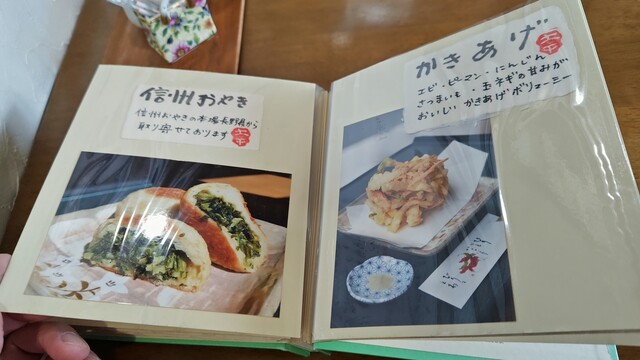 信州おやき
信州おやきの本場長野県から
取り寄せております
かきあげ
エビ・ピーマン・にんじん
さつまいも・玉ネギの甘みが
おいしいかきあげボリューミー